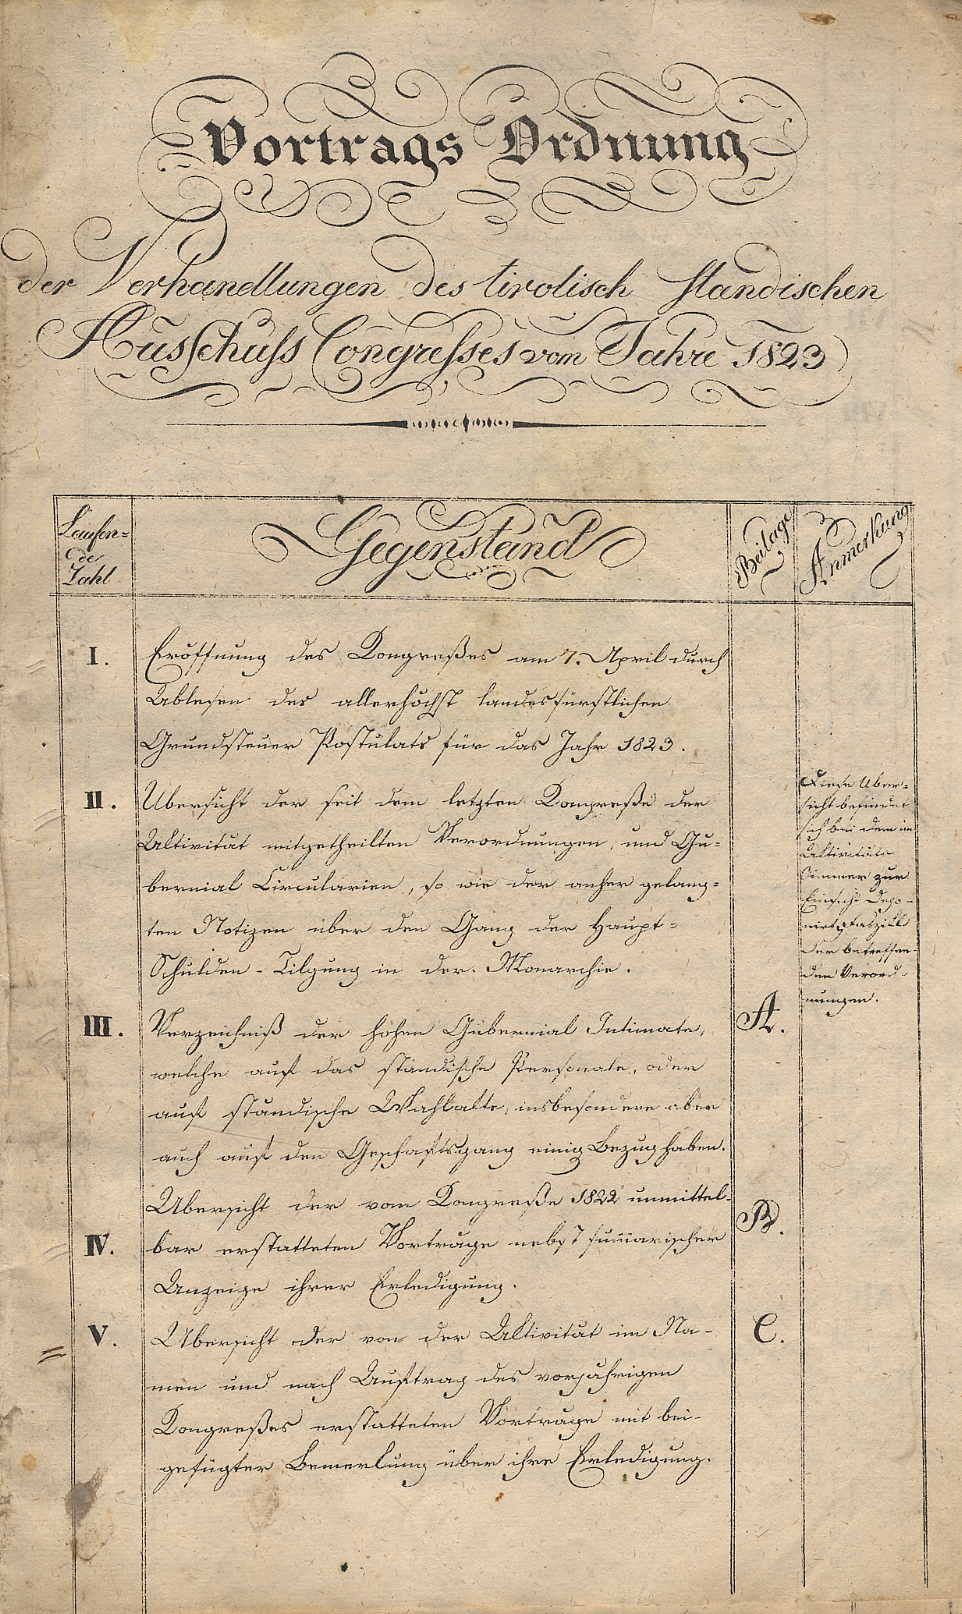 Vortrags Ordnung
der Verhandlungen des tirolisch ständischen
Ausschuss Congresses vom Jahre 1823
Laufen=
de
Zahl
Gegenstand
Beilage
Anmerkung
I.
Eröffnung des Kongreßes am 7. April durch
Ablesen des allerhöchst landesfürstlichen
Grundsteuer Postulats für das Jahr 1823.
II.
Übersicht der seit dem letzten Kongreße der
Aktivität mitgetheilten Verordnungen, und Gu-
bernial Circularien, so wie der anher gelang=
ten Notizen über den Gang der Haupt=
Schulden-Tilgung in der Monarchie.
Diese Über=
sicht befindet
sich bei dem im
Aktivitäts
Zimmer zur
Einsicht depo-
nirten Faszikl
der betreffen-
den Verord-
nungen.
III.
Verzeichniß der hohen Gubernial Intimate,
welche auf das ständische Personale, oder
auf ständische Wahlakte, insbesondere aber
auch auf den Geschäftsgang einig Bezug haben.
A.
IV.
Übersicht der vom Kongreße 1822 unmittel-
bar erstatteten Vorträge nebst summarischer
Anzeige ihrer Erledigung.
B.
V.
Übersicht der von der Aktivität im Na-
men und nach Auftrag des vorjährigen
Kongreßes erstatteten Vorträge mit bei-
gefügter Bemerkung über ihre Erledigung.
C.